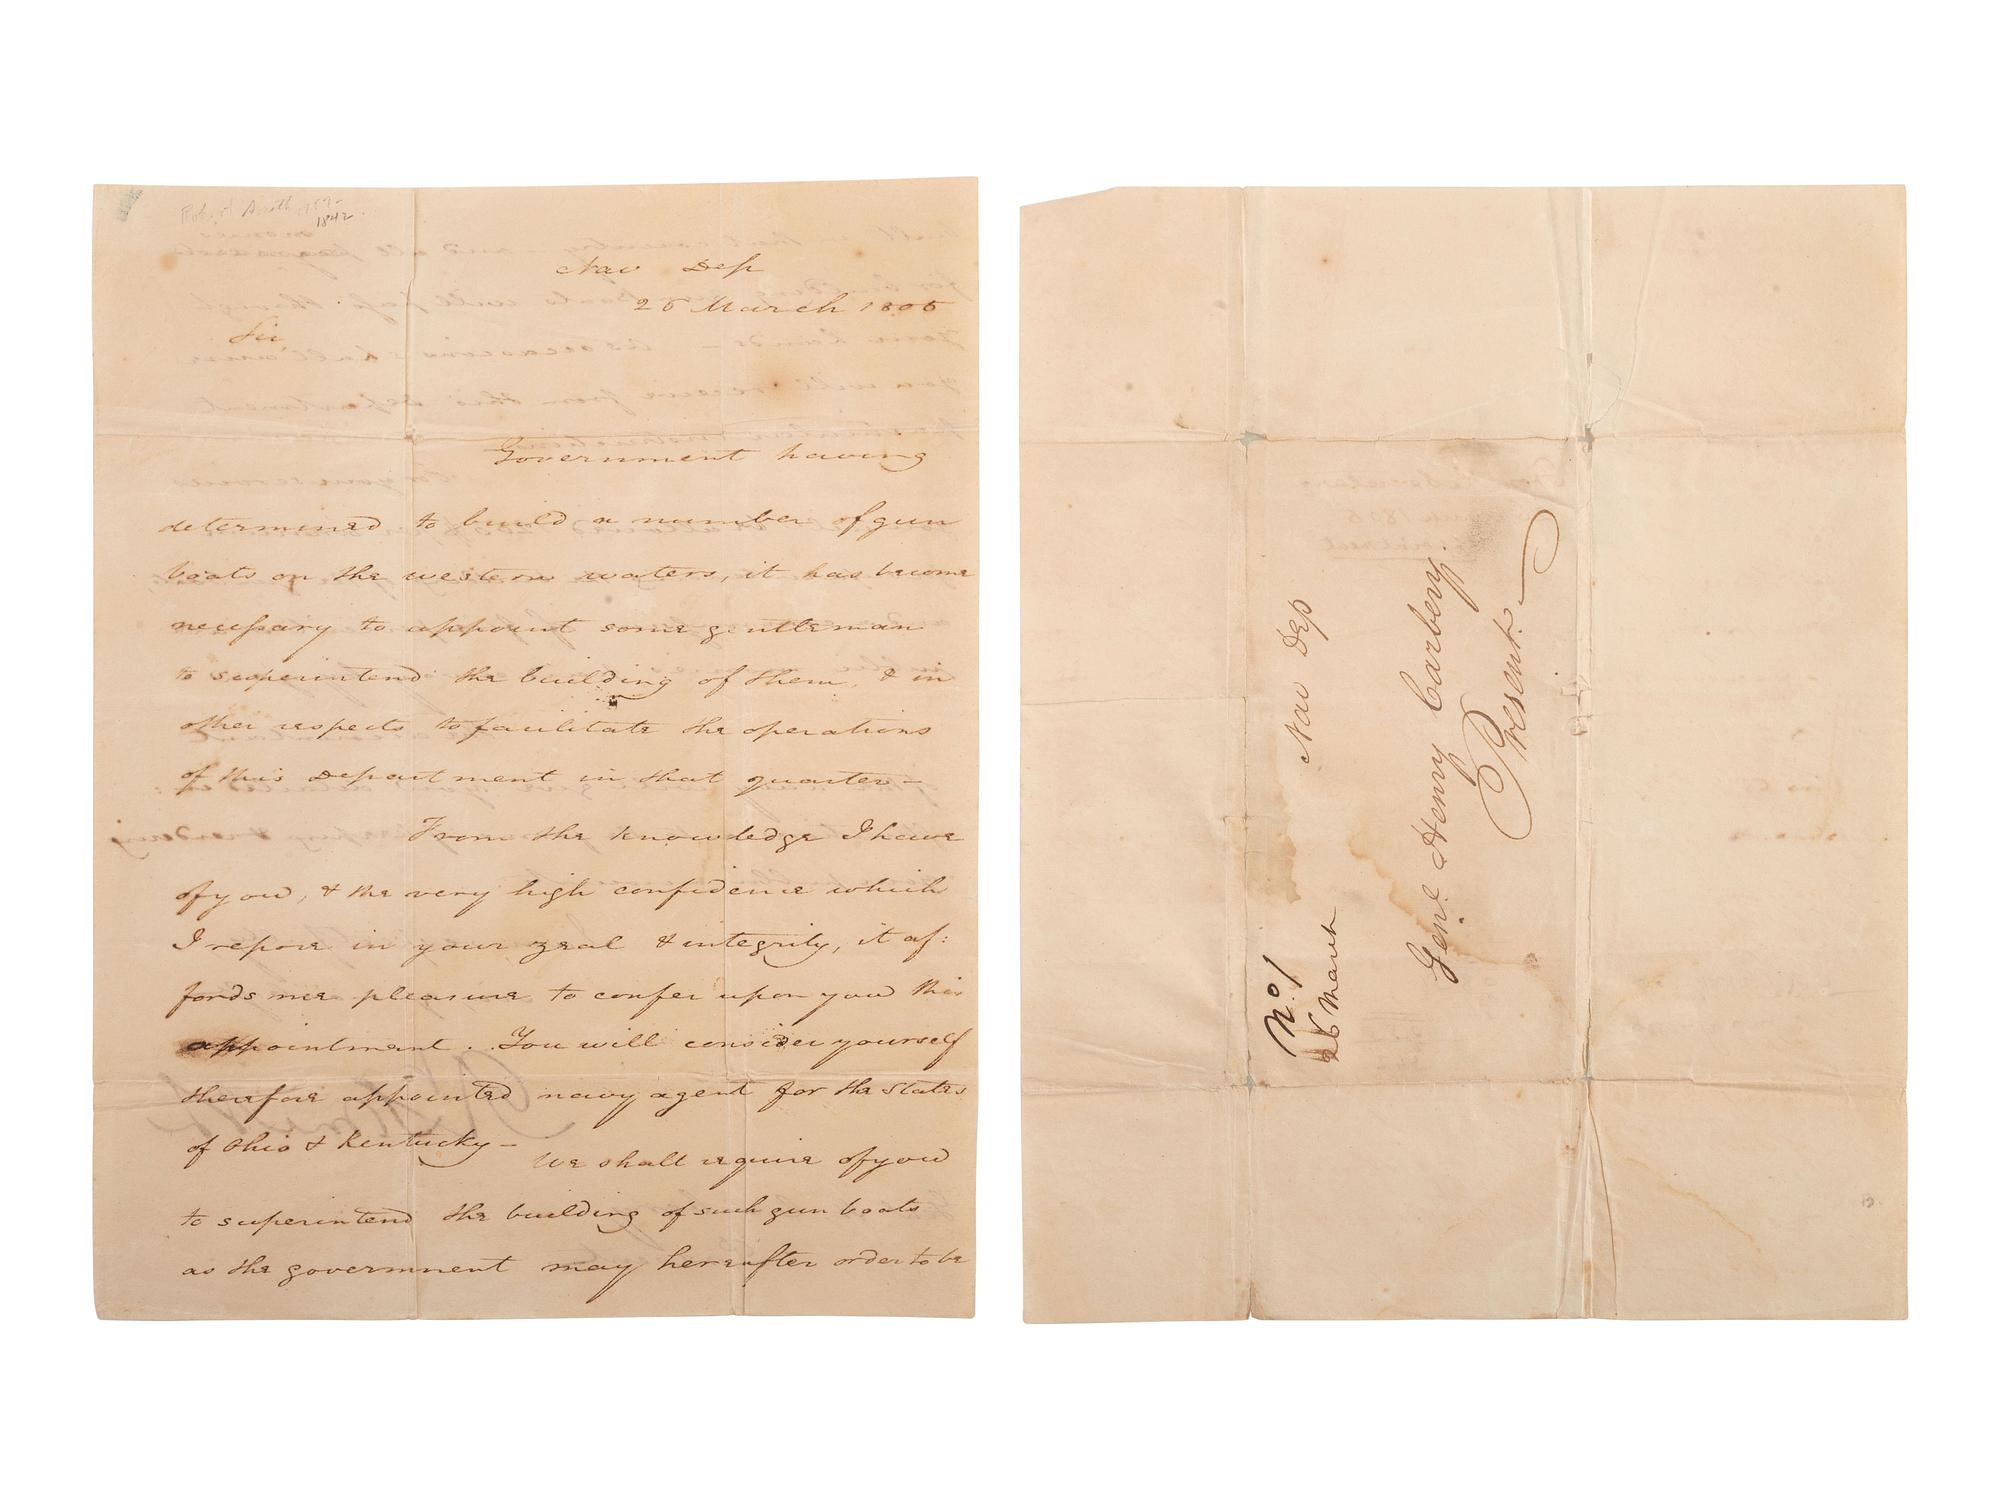 Robert Smith 1757-
1842
Nav Dep
26 March 1806
Sir
Government having
determined to build a number of gun
boats on the western waters, it has become
necessary to appoint some gentleman
to superintend the building of them, & in
other respects to facilitate the operations
of this Department in that quarter –
From the knowledge I have
of you, & the very high confidence which
I repose in your zeal & integrity, it af:
fords me pleasure to confer upon you this
appointment. You will consider yourself
therefore appointed navy agent for the States
of Ohio & Kentucky –
We shall require of you
to superintend the building of such gun boats
as the government may hereafter order to be
Nav Dep
Genl. Henry Carbery
Present.
No. 1
26 March